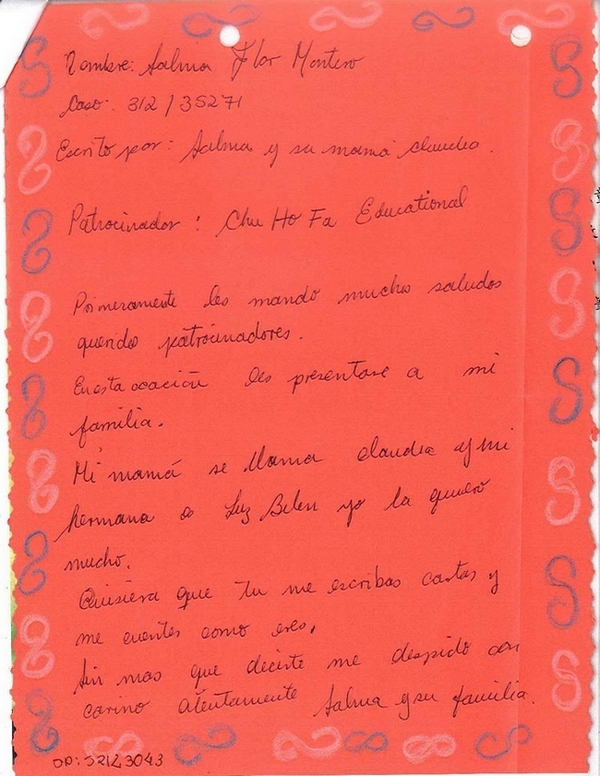 Nombre: Salma Flor Montero
Caso: 312 / 35271
Escrito por: Salma y su mamá claudia.
Patrocinador: Chu Ho Fa Educational
Primeramente les mando muchos saludos
queridos patrocinadores.
En esta ocación les presentare a mi
familia.
Mi mamá se llama claudia y mi
hermana es Luz Belen yo la quiero
mucho.
Quisiera que tu me escribas cartas y
me cuentes como eres.
Sin mas que decirte me despido con
carino atentamente Salma y su familia.